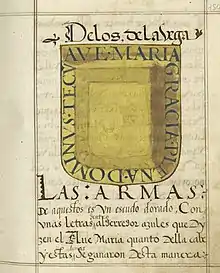 De los, de la Vega
AVE MARIA
GRACIA PLENA
DOMINVS TECV
LAS: ARMAS:
De aquestos es Vn escudo dorado, Con
Vnas Letras, al derredor azules que Dy
zen el Aue Maria quanto della cabe
y estas, se ganaron Desta manera